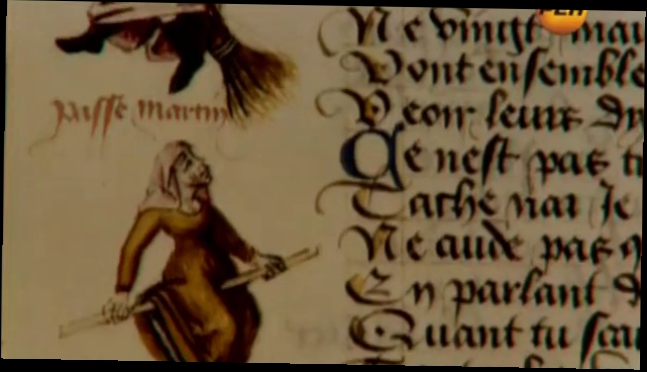 РЕН
passe martin
Ne vingt mau
Vont ensemble
Veoir leurs dy
Ce nest pas
Tache nat Je
Ne aude pas q
En parlant d
Quant tu scau